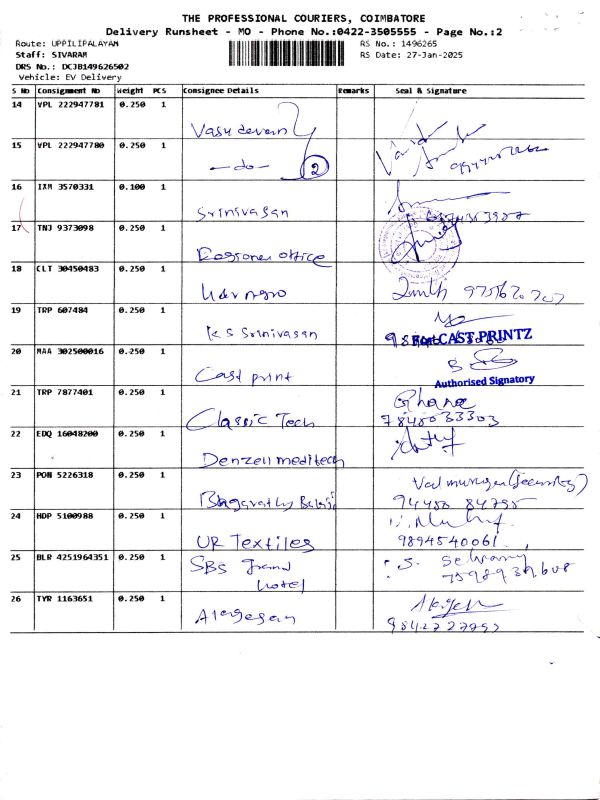 THE PROFESSIONAL COURIERS, COIMBATORE
Delivery Runsheet - MO - Phone No.:0422-3505555 - Page No.:2
Route: UPPILIPALAYAM
RS No.: 1496265
Staff: SIVARAM
RS Date: 27-Jan-2025
DRS No.: DCJB149626502
Vehicle: EV Delivery
S No Consignment No Weight PCS Consignee Details Remarks Seal & Signature
14 VPL 222947781 0.250 1 Vasudevan
15 VPL 222947780 0.250 1 -do- 2
16 IXM 3570331 0.100 1 Srinivasan
17 TNJ 9373098 0.250 1 office
18 CLT 30450483 0.250 1
19 TRP 607484 0.250 1 K S Srinivasan
For CAST PRINTZ
20 MAA 302500016 0.250 1 Cast print
Authorised Signatory
21 TRP 7877401 0.250 1 Classic Tech 7845033303
22 EDQ 16048200 0.250 1 Denzell meditech
23 PON 5226318 0.250 1 Balaji 94450 84795
24 HDP 5100988 0.250 1 UR Textiles 9894540061
25 BLR 4251964351 0.250 1 SBS grand
hotel
26 TYR 1163651 0.250 1 Alagesan